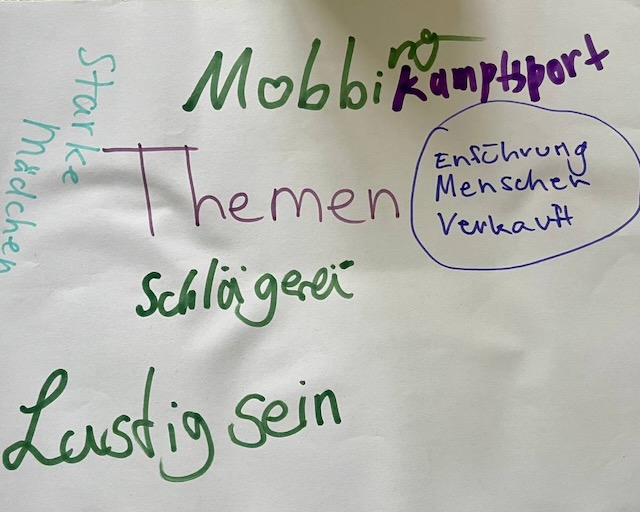 Mobbing
Kamptsport
Starke
Mädchen
Themen
Entführung
Menschen
Verkauft
Schlägerei
Lustig sein